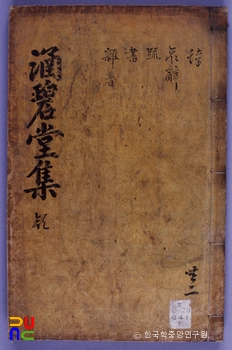 詩
哀辭
疏
書
雜著
涵碧堂集
乾
共二
ⓒ 한국학중앙연구원